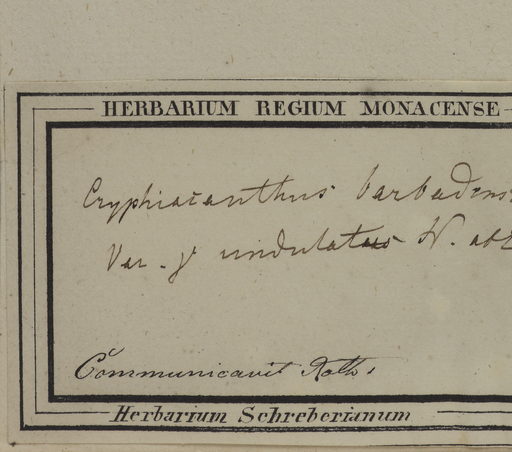 HERBARIUM REGIUM MONACENSE
Cryphiacanthus barbadens
Var. γ undulatus N. ab E
Communicavit Roth.
Herbarium Schreberianum